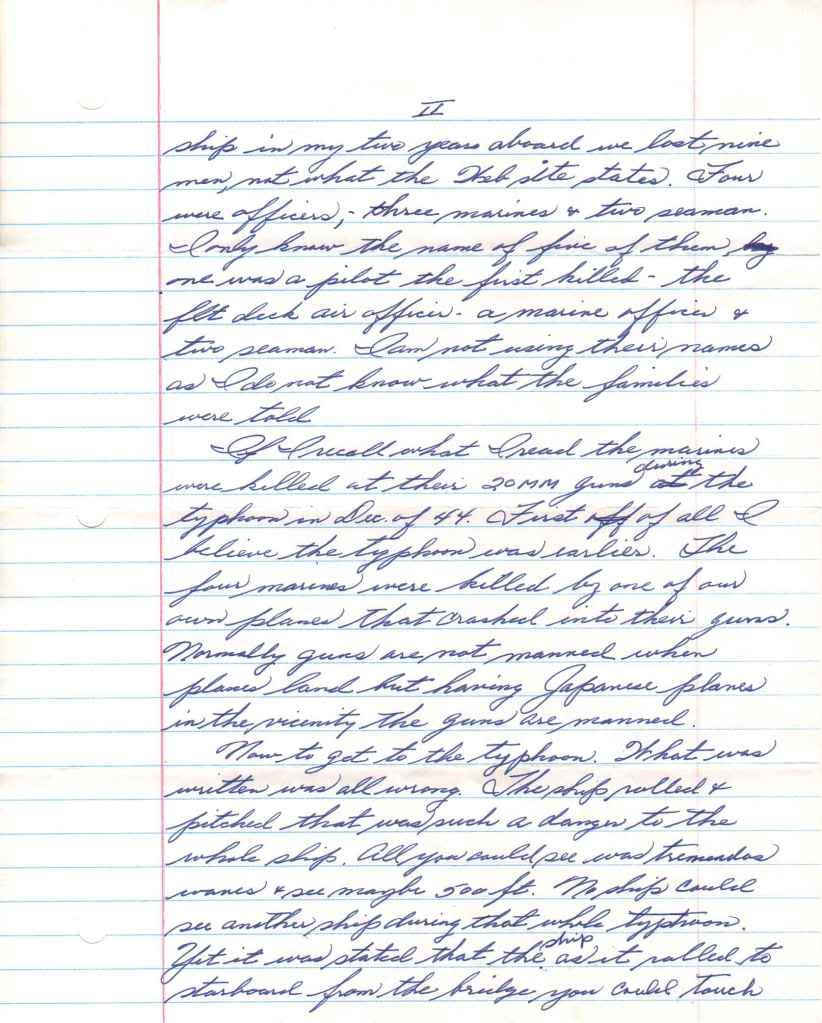 II
ship in my two years aboard we lost nine
men, not what the Web site states. Four
were officers, - three marines & two seaman.
I only know the name of five of them,
one was a pilot the first killed - the
flt deck air officer - a marine officer &
two seaman. I am not using their names
as I do not know what the families
were told
If I recall what I read the marines
were killed at their 20MM guns during the
typhoon in Dec. of 44. First off of all I
believe the typhoon was earlier. The
four marines were killed by one of our
own planes that crashed into their guns.
Normally guns are not manned when
planes land but having Japanese planes
in the vicinity the guns are manned.
Now to get to the typhoon. What was
written was all wrong. The ship rolled &
pitched that was such a danger to the
whole ship. All you could see was tremendos
waves & see maybe 500 ft. No ship could
see another ship during that whole typhoon.
Yet it was stated that the ship as it rolled to
starboard from the bridge you could touch